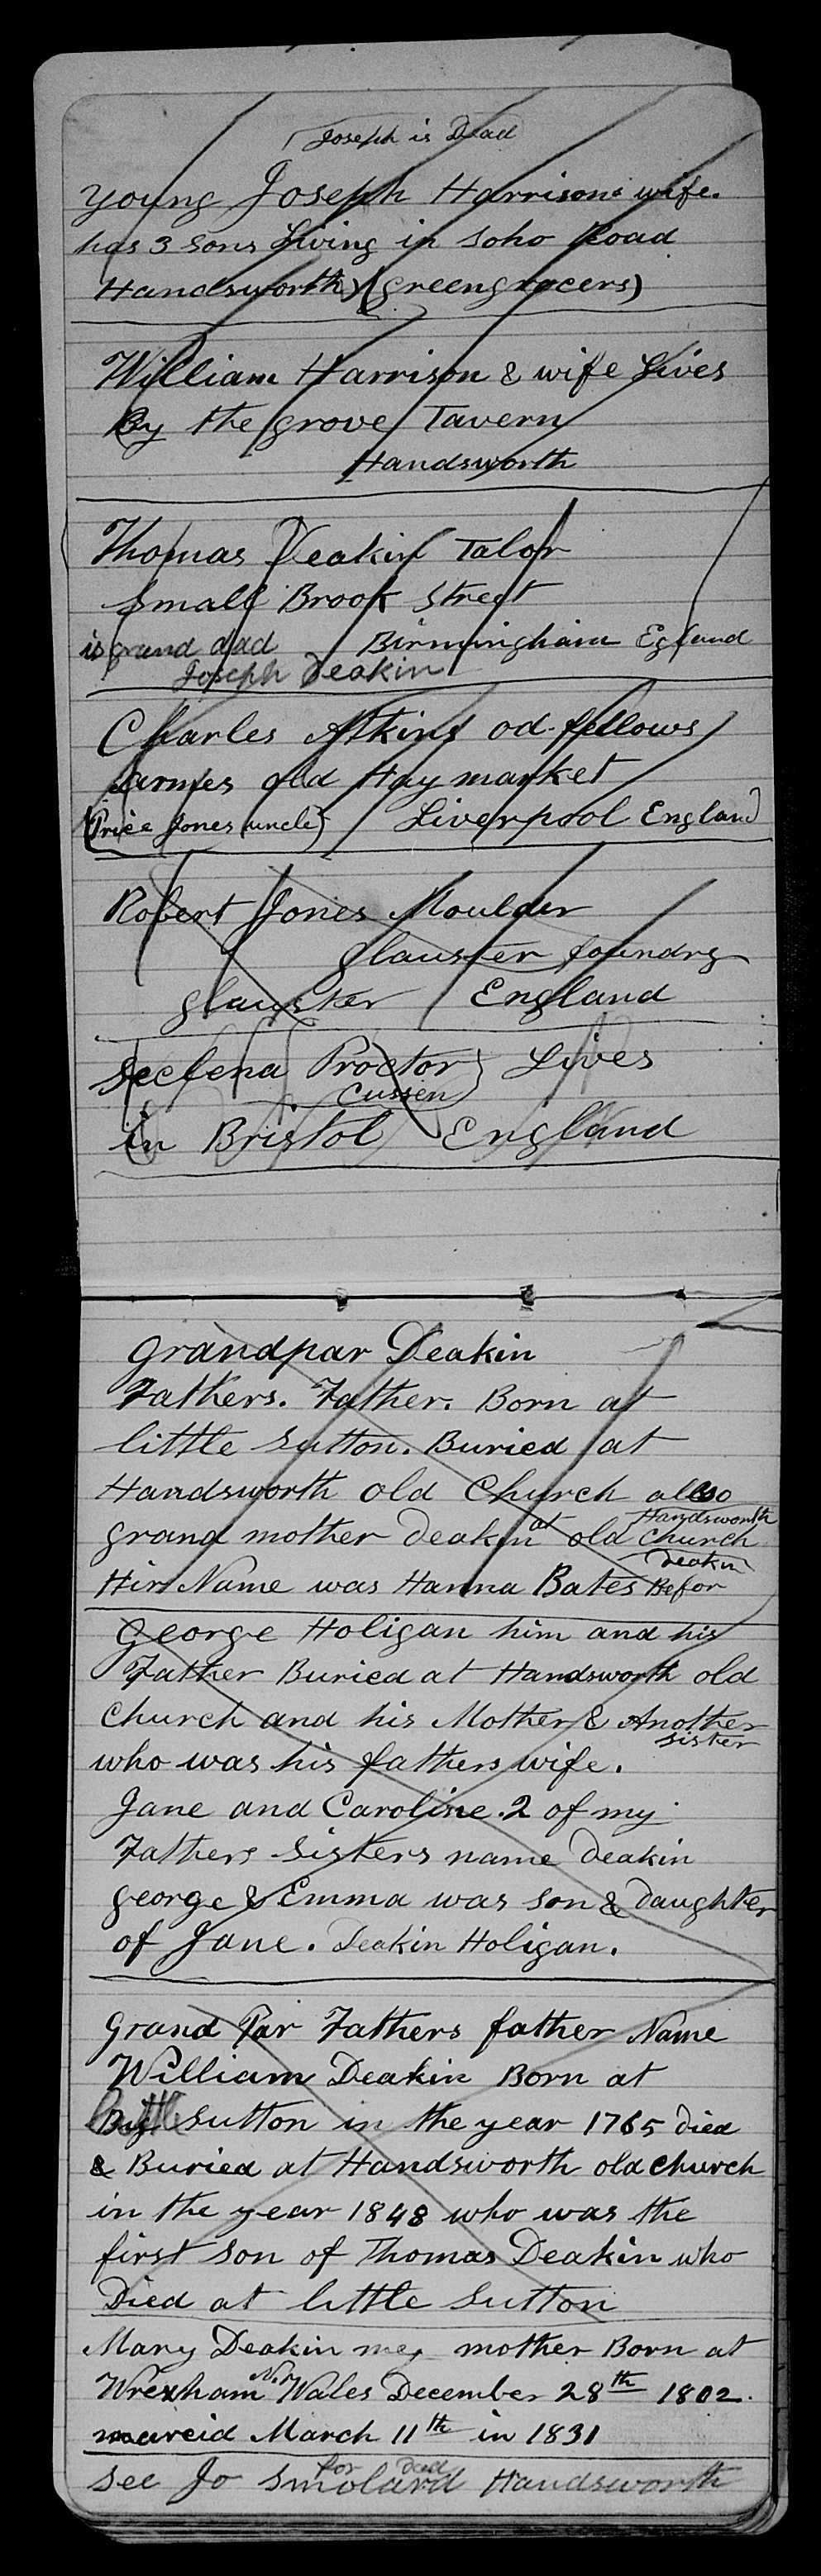 Joseph is Dead
young Joseph Harrisons wife.
has 3 sons Living in Soho Road
Handsworth) (greengrocers)
William Harrison & wife Lives
By the grove Tavern
Handsworth
Thomas Deakin Talor
Small Brook Street
is grand dad Birmingham Egland
Joseph Deakin
Charles Atkins od fellows
armes old Hay market
(Price Jones uncle) Liverpool England
Robert Jones Moulder
glauster foundry
glauster England
Seelena Proctor) Lives
Cussen
in Bristol England
Grandpar Deakin
Fathers. Father. Born at
little Sutton. Buried at
Handsworth old Church allso
Handsworth
grand mother deakin at old church
Deakin
Hir Name was Hanna Bates Befor
George Holigan him and his
Father Buried at Handsworth old
Church and his Mother & Another
sister
who was his fathers wife.
Jane and Caroline. 2 of my
Fathers Sisters name deakin
george & Emma was son & daughter
of Jane. Deakin Holigan.
Grand Par Fathers father Name
William Deakin Born at
little Sutton in the year 1765 died
& Buried at Handsworth old church
in the year 1848 who was the
first son of Thomas Deakin who
Died at little Sutton
Mary Deakin me, mother Born at
Wrexham N. Wales December 28th 1802.
mareid March 11th in 1831
for dad
See Jo Smolard Handsworth